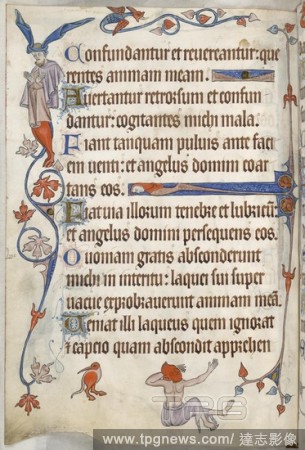 Confundantur et reuereantur: que
rentes animam meam.
Auertantur retrorsum et confun
dantur: cogitantes michi mala.
Fiant tanquam puluis ante faci
em uenti: et angelus domini coar
tans eos.
Fiat uia illorum tenebre et lubricum:
et angelus domini persequens eos.
Quoniam gratis absconderunt
michi interitum: laquei sui super
uacue exprobrauerunt animam meam.
Ueniat illi laqueus quem ignorat
et captio quam abscondit apprehen
www.tpgnews.com/ 達志影像